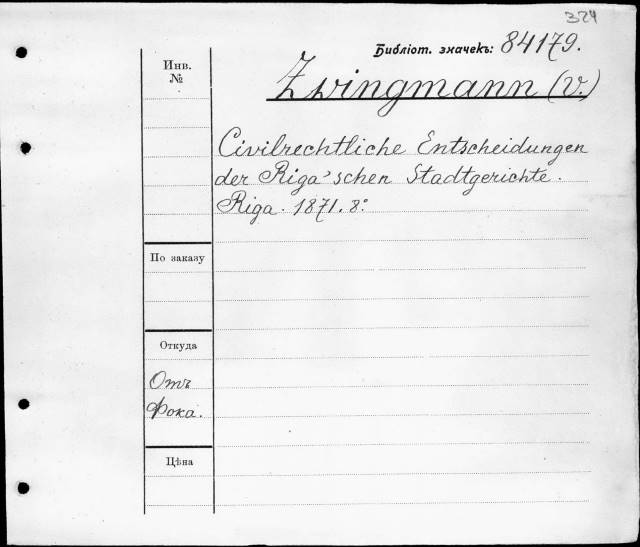 324
Библіот. значекъ: 84179.
Инв.
№
Zwingmann (V.)
Civilrechtliche Entscheidungen
der Riga'schen Stadtgerichte.
Riga. 1871. 8°
По заказу
Откуда
Отъ
Фока.
Цѣна